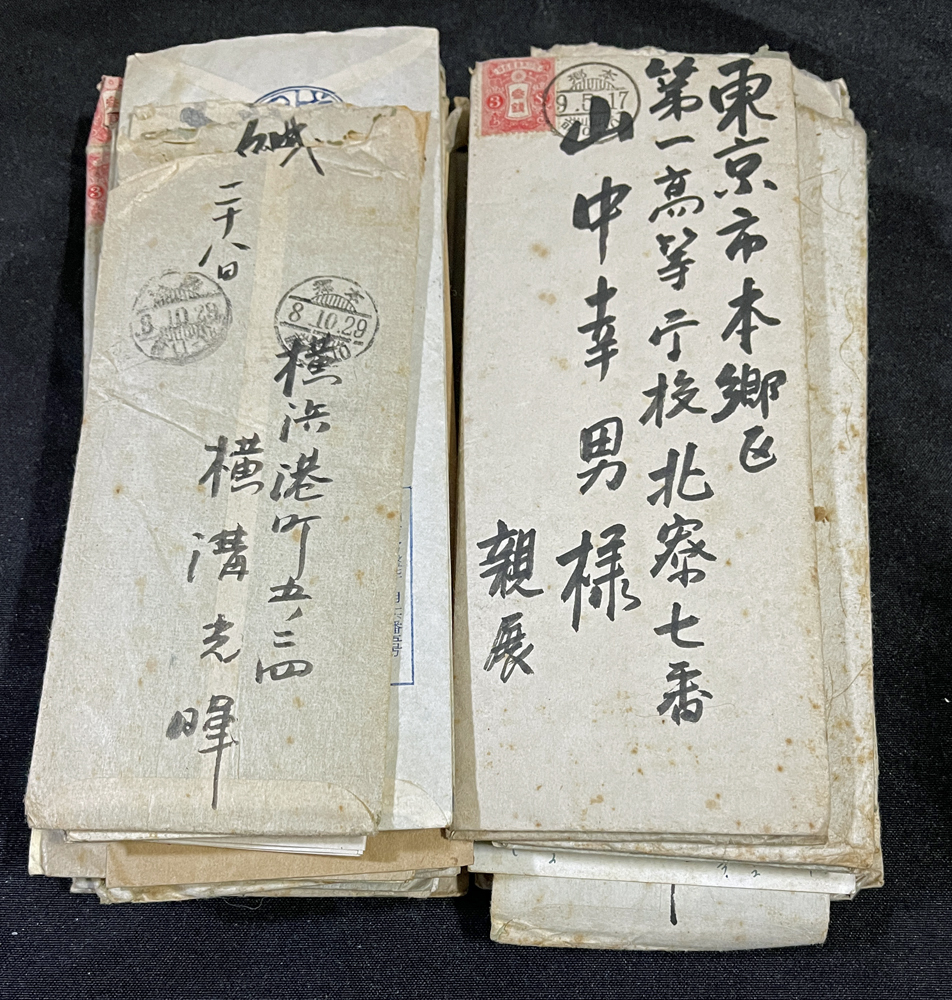 東京市本郷区
第一高等学校北寮七番
山中幸男様
親展
本郷
9.5.17
3
二十八日
8.10.29
本郷
8.10.29
横浜港町五ノ三四
横溝光暉
3